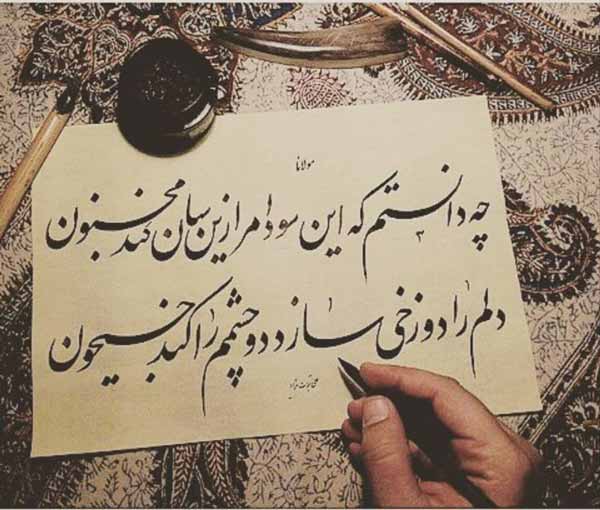 مولانا
چه دانستم که این سودا مرا زین سان کند مجنون
دلم را دوزخی سازد دو چشمم را کند جیحون